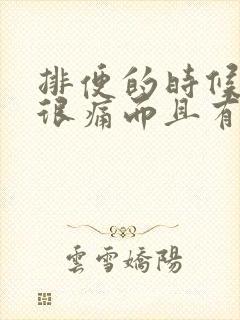 排便的時候
很痛而且有
雲雪嬌陽